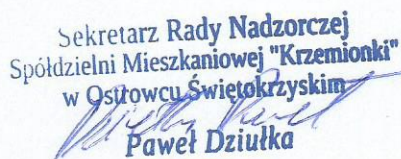 Sekretarz Rady Nadzorczej
Spółdzielni Mieszkaniowej "Krzemionki"
w Ostrowcu Świętokrzyskim
Paweł Dziułka